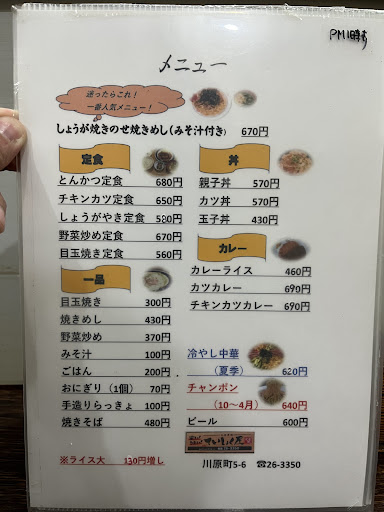 PM1時す
メニュー
迷ったらこれ!
一番人気メニュー!
しょうが焼きのせ焼きめし(みそ汁付き) 670円
定食
とんかつ定食 680円
チキンカツ定食 650円
しょうがやき定食 580円
野菜炒め定食 670円
目玉焼き定食 560円
一品
目玉焼き 300円
焼きめし 430円
野菜炒め 370円
みそ汁 100円
ごはん 200円
おにぎり(1個) 70円
手造りらっきょ 100円
焼きそば 480円
※ライス大 130円増し
丼
親子丼 570円
カツ丼 570円
玉子丼 430円
カレー
カレーライス 460円
カツカレー 690円
チキンカツカレー 690円
冷やし中華
(夏季) 620円
チャンポン
(10~4月) 640円
ビール 600円
川原町5-6 ☎26-3350